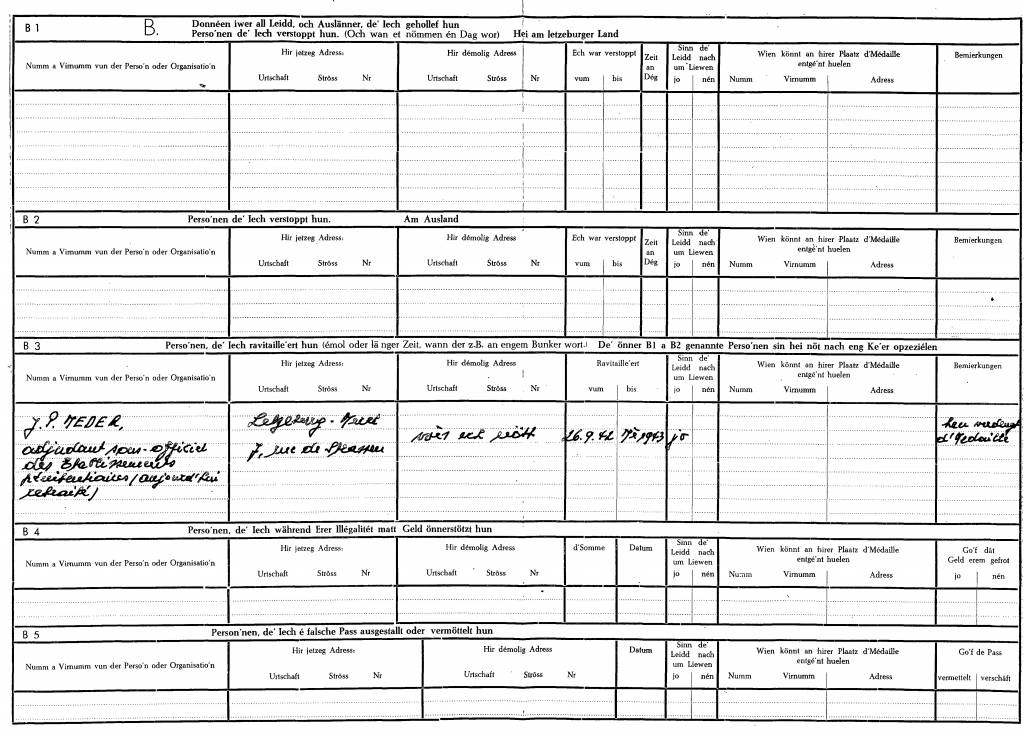 B 1 B. Donnéen iwer all Leidd, och Auslänner, de' Iech gehollef hun
Perso'nen de' Iech verstoppt hun. (Och wan et nömmen én Dag wor) Hei am letzeburger Land
Numm a Virnumm vun der Perso'n oder Organisatio'n
Hir jetzeg Adress:
Urtschaft Ströss Nr
Hir démolig Adress
Urtschaft Ströss Nr
Ech war verstoppt
vum bis
Zeit
an
Dég
Sinn de'
Leidd nach
um Liewen
jo nén
Wien könnt an hirer Plaatz d'Médaille
entgé'nt huelen
Numm Virnumm Adress
Bemierkungen
B 2 Perso'nen de' Iech verstoppt hun. Am Ausland
Numm a Virnumm vun der Perso'n oder Organisatio'n
Hir jetzeg Adress:
Urtschaft Ströss Nr
Hir démolig Adress
Urtschaft Ströss Nr
Ech war verstoppt
vum bis
Zeit
an
Dég
Sinn de'
Leidd nach
um Liewen
jo nén
Wien könnt an hirer Plaatz d'Médaille
entgé'nt huelen
Numm Virnumm Adress
Bemierkungen
B 3 Perso'nen, de' Iech ravitaille'ert hun (émol oder länger Zeit, wann der z.B. an engem Bunker wort.) De' önner B1 a B2 genannte Perso'nen sin hei nöt nach eng Ke'er opzeziélen
Numm a Virnumm vun der Perso'n oder Organisatio'n
Hir jetzeg Adress:
Urtschaft Ströss Nr
Hir démolig Adress
Urtschaft Ströss Nr
Ravitaille'ert
vum bis
Sinn de'
Leidd nach
um Liewen
jo nén
Wien könnt an hirer Plaatz d'Médaille
entgé'nt huelen
Numm Virnumm Adress
Bemierkungen
J. P. MEDER,
adjudant sous-officier
des Etablissements
pénitentiaires (aujourd'hui
retraité)
7, rue de
wees ech nött
26.9.42 1943
jo
hen verdengt
d'Medaille
B 4 Perso'nen, de' Iech während Erer Illégalitét matt Geld önnerstötzt hun
Numm a Virnumm vun der Perso'n oder Organisatio'n
Hir jetzeg Adress:
Urtschaft Ströss Nr
Hir démolig Adress
Urtschaft Ströss Nr
d'Somme
Datum
Sinn de'
Leidd nach
um Liewen
jo nén
Wien könnt an hirer Plaatz d'Médaille
entgé'nt huelen
Numm Virnumm Adress
Go'f dât
Geld erem gefrot
jo nén
B 5 Person'nen, de' Iech é falsche Pass ausgestallt oder vermöttelt hun
Numm a Virnumm vun der Perso'n oder Organisatio'n
Hir jetzeg Adress:
Urtschaft Ströss Nr
Hir démolig Adress
Urtschaft Ströss Nr
Datum
Sinn de'
Leidd nach
um Liewen
jo nén
Wien könnt an hirer Plaatz d'Médaille
entgé'nt huelen
Numm Virnumm Adress
Go'f de Pass
vermettelt verschäft